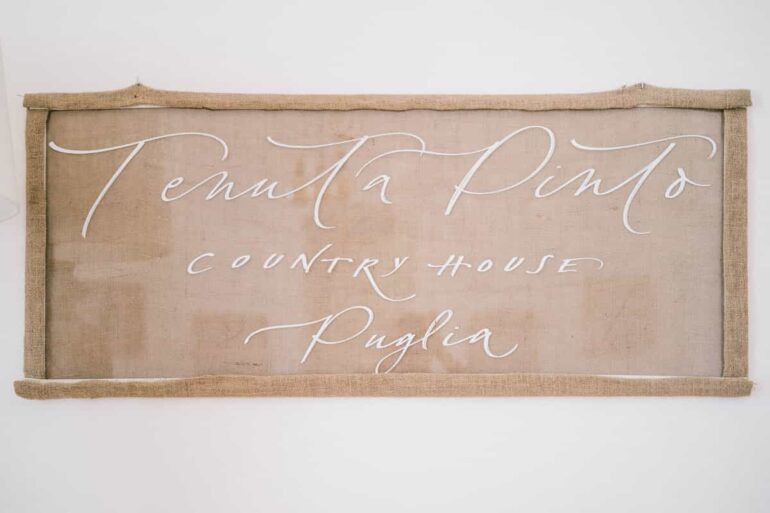 Tenuta Pinto
COUNTRY HOUSE
Puglia